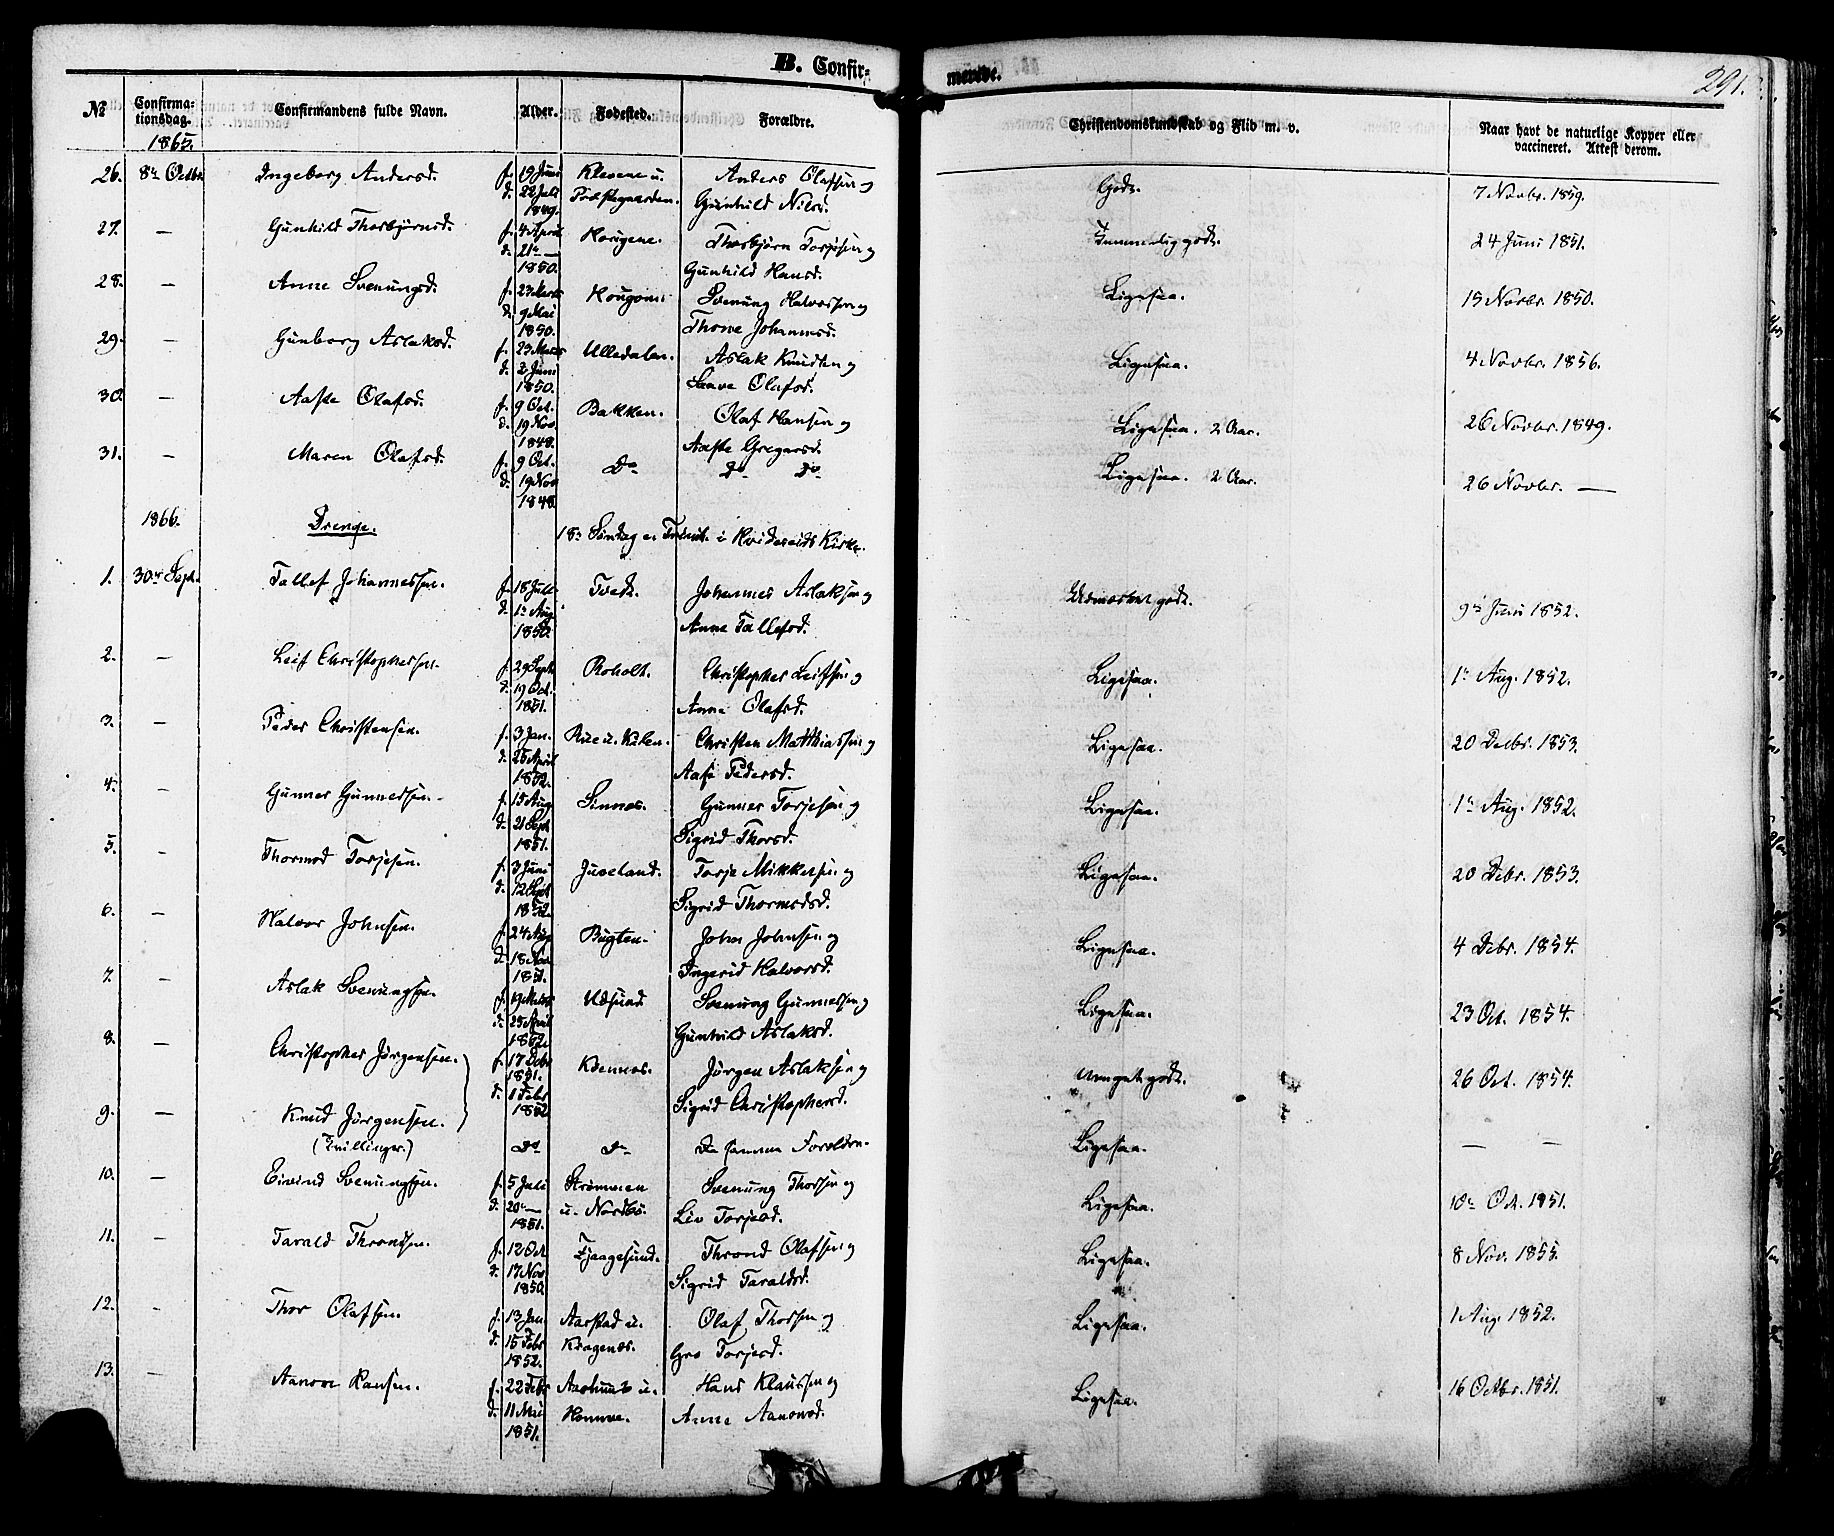 B. Confirmerede.
291.
№
Confirma-
tionsdag.
Confirmandens fulde Navn.
Alder.
Fødested.
Forældre.
Christendomskundskab og Flid m. v.
Naar havt de naturlige Kopper eller
vaccineret. Attest derom.
1865.
26. 8de Octbr. Ingeborg Andersd. f. 19 Juni Klevene u. Anders Olafsen og Godt. 7 Novbr. 1859.
d. 22 Juli Præstegaarden. Gunhild Nilsd.
1849.
27. — Gunhild Thorbjørnsd. f. 4 April Hougene. Thorbjørn Torjesen og Temmelig godt. 24 Juni 1851.
d. 21 — Gunhild Hansd.
1850.
28. — Anne Svenungsd. f. 23 Marts Svenung Halvorsen og Ligesaa. 15 Novbr. 1850.
d. 9 Mai Thone Johannesd.
1850.
29. — Gunborg Aslaksd. f. 23 Marts Ulledalen. Aslak Knudsen og Ligesaa. 4 Novbr. 1856.
d. 2 Juni Olafsd.
1850.
30. — Aaste Olafsd. f. 9 Oct. Bakken. Olaf Hansen og Ligesaa. 2 Aar. 26 Novbr. 1849.
d. 19 Nov. Aaste Gregarsd.
1848.
31. — Maren Olafsd. f. 9 Oct. Do Do Do Ligesaa. 2 Aar. 26 Novbr. —
d. 19 Nov
1848.
1866. Drenge. 18de Søndag e. Trinit. i Hvideseids Kirke.
1. 30te Sept. Tallef Johannessen. f. 18 Juli Tvedt. Johannes Aslaksen og Udmærket godt. 9de Juni 1852.
d. 1te Aug. Anne Tallefsd.
1850.
2. — Leif Christophersen. f. 29 Sept. Roholt. Christopher Leifsen og Ligesaa. 1te Aug. 1852.
d. 19 Oct. Anne Olafsd.
1851.
3. — Peder Christensen. f. 3 Jan. Rue u. Kilen. Christen Matthiassen og Ligesaa. 20 Decbr. 1853.
d. 25 April Aase Pedersd.
1852.
4. — Gunner Gunnersen. f. 15 Aug Sinnes. Gunner Torjesen og Ligesaa. 1te Aug. 1852.
d. 21 Sept Sigrid Thorsd.
1851.
5. — Thormod Torjesen. f. 3 Juni Juveland. Torje Mikkelsen og Ligesaa. 20 Debr. 1853.
d. 12 Sept Sigrid Thormodsd.
1852.
6. — Halvor Johnsen. f. 24 Aug Bugten. John Johnsen og Ligesaa. 4 Debr. 1854.
d. 18 Nov. Ingerid Halvorsd.
1851.
7. — Aslak Svenungsen. f. 19 Marts Svenung Gunnersen og Ligesaa. 23 Oct. 1854.
d. 25 April Gunhild Aslaksd.
1852.
8. — Christopher Jørgensen. f. 17 Debr Jørgen Aslaksen og Meget godt. 26 Oct. 1854.
1851.
d. 1 Febr Sigrid Christophersd.
1852
9. — Knud Jørgensen.
(Tvillinger.) Do Do De samme Forældre. Ligesaa. — —
10. — Eivind Svenungsen. f. 5 Juli Strømmen Svenung Thorsen og Ligesaa. 10de Oct. 1851.
d. 20de — u. Nordbø. Liv Torjesd.
1851.
11. — Tarald Throndsen. f. 12 Oct Fjaagesund. Thrond Olafsen og Ligesaa. 8 Nov. 1855.
d. 17 Nov Sigrid Taraldsd.
1850.
12. — Thor Olafsen. f. 13 Jan Aarstad u. Olaf Thorsen og Ligesaa. 1 Aug. 1852.
d. 15 Febr Kragenæs. Gro Torjesd.
1852.
13. — Aanon Hansen. f. 22 Febr u. Hans Klaussen og Ligesaa. 16 Octbr. 1851.
d. 11 Mai Anne Aanonsd.
1851.